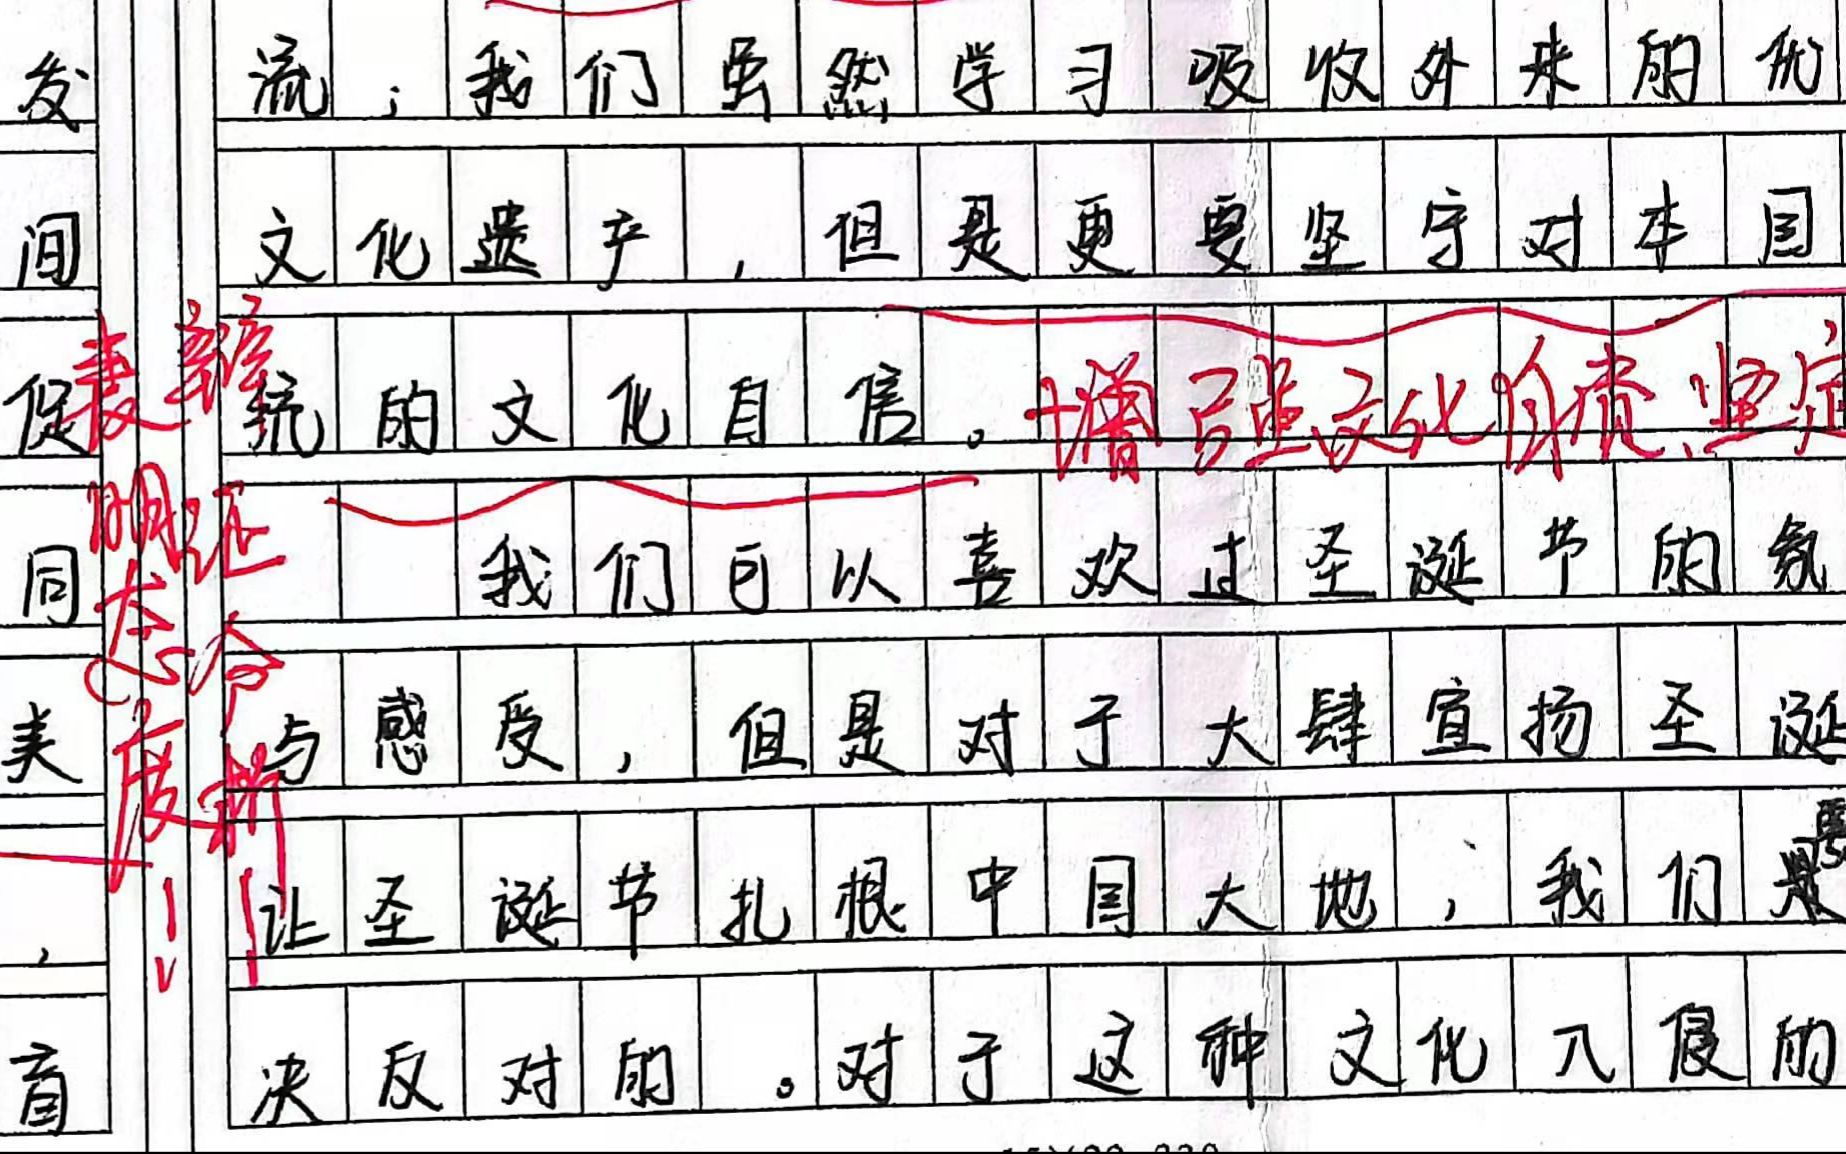 发
间
促
同
美
，
育
流；我们虽然学习吸收外来的优
文化遗产，但是更要坚守对本国
统的文化自信。增强文化自责、坚定
我们可以喜欢过圣诞节的氛
与感受，但是对于大肆宣扬圣诞
让圣诞节扎根中国大地，我们是
决反对的。对于这种文化入侵的
表明态度
辩证分析